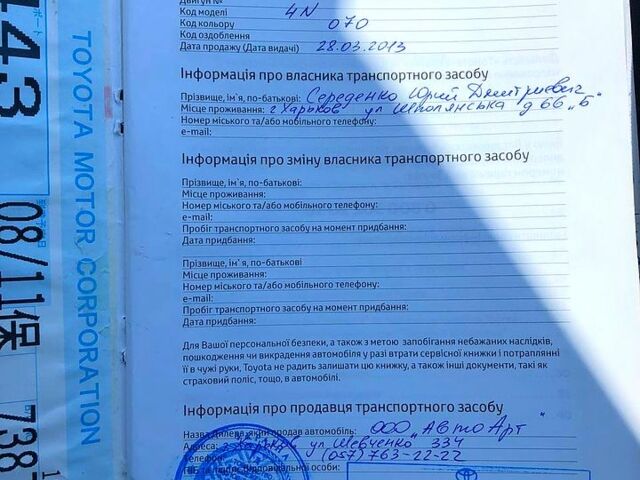 Двигун №
Код моделі 4N
Код кольору 070
Код оздоблення
Дата продажу (Дата видачі) 28.03.2013
Інформація про власника транспортного засобу
Прізвище, ім'я, по-батькові: Середенко Юрий Дмитриевич
Місце проживання: г Харьков ул Шполянська д 66 "Б"
Номер міського та/або мобільного телефону:
e-mail:
Інформація про зміну власника транспортного засобу
Прізвище, ім'я, по-батькові:
Місце проживання:
Номер міського та/або мобільного телефону:
e-mail:
Пробіг транспортного засобу на момент придбання:
Дата придбання:
Прізвище, ім'я, по-батькові
Місце проживання:
Номер міського та/або мобільного телефону:
e-mail:
Пробіг транспортного засобу на момент придбання:
Дата придбання:
Для Вашої персональної безпеки, а також з метою запобігання небажаних наслідків,
пошкодження чи викрадення автомобіля у разі втрати сервісної книжки і потраплянні
її в чужі руки, Toyota не радить залишати цю книжку, а також інші документи, такі як
страховий поліс, тощо, в автомобілі.
Інформація про продавця транспортного засобу
Назва Дилера, який продав автомобіль: ООО "АвтоАрт"
Адреса: г Харьков ул Шевченко 334
Телефон: (057) 763-22-22
ПІБ та підпис відповідальної особи:
TOYOTA MOTOR CORPORATION
143
08/11保
738